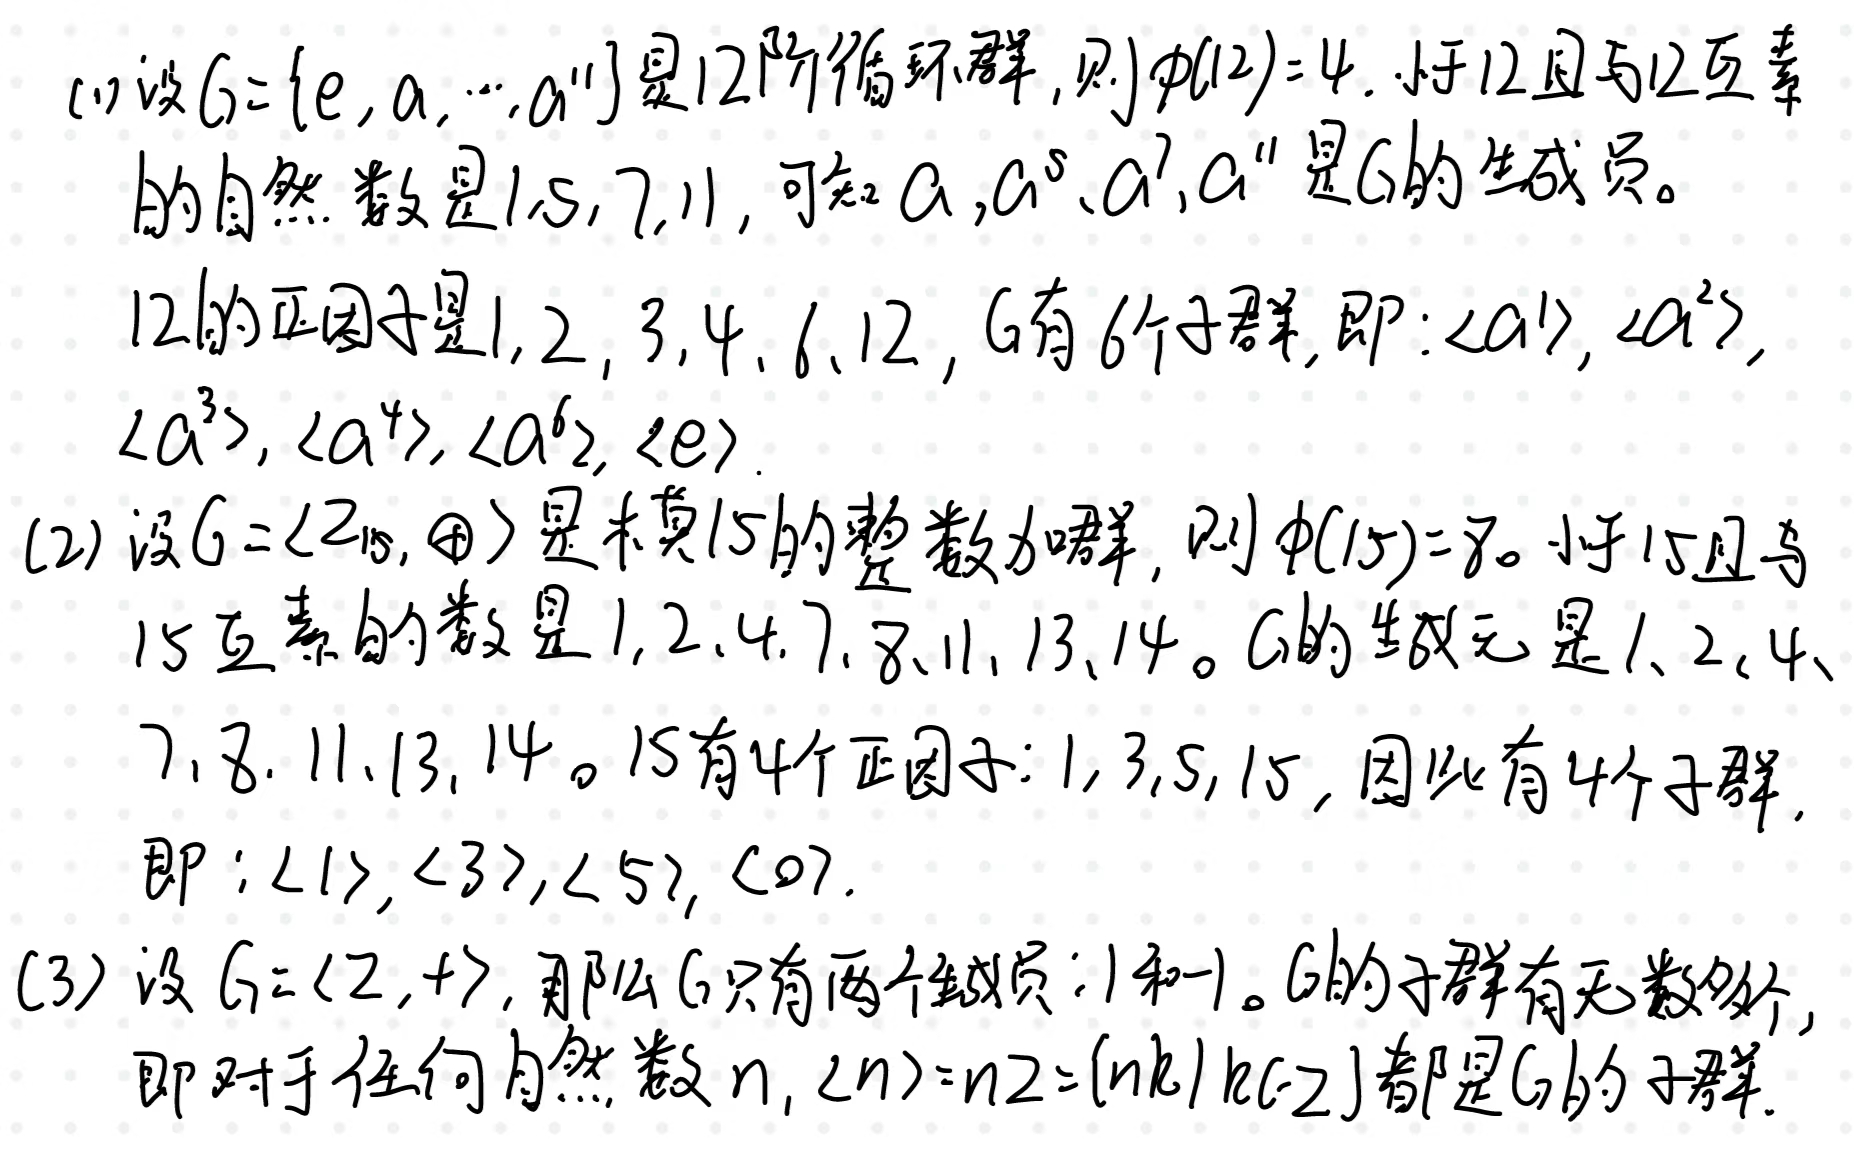 (1) 设G={e, a, …, a¹¹}是12阶循环群, 则φ(12)=4. 小于12且与12互素
的自然数是1,5,7,11, 可知 a,a⁵、a⁷,a¹¹ 是G的生成员。
12的正因子是1,2,3,4、6、12, G有6个子群, 即:<a¹>, <a²>,
<a³>, <a⁴>, <a⁶>, <e>.
(2) 设G=<Z₁₅, ⊕>是模15的整数加群, 则φ(15)=8。小于15且与
15互素的数是1,2、4、7、8、11、13、14。G的生成元是1、2、4、
7、8、11、13、14。15有4个正因子:1,3,5,15, 因此有4个子群,
即:<1>, <3>, <5>, <0>.
(3) 设G=<Z,+>, 那么G只有两个生成员:1和-1。G的子群有无数多个,
即对于任何自然数n, <n>=nZ={nk|k∈Z}都是G的子群.